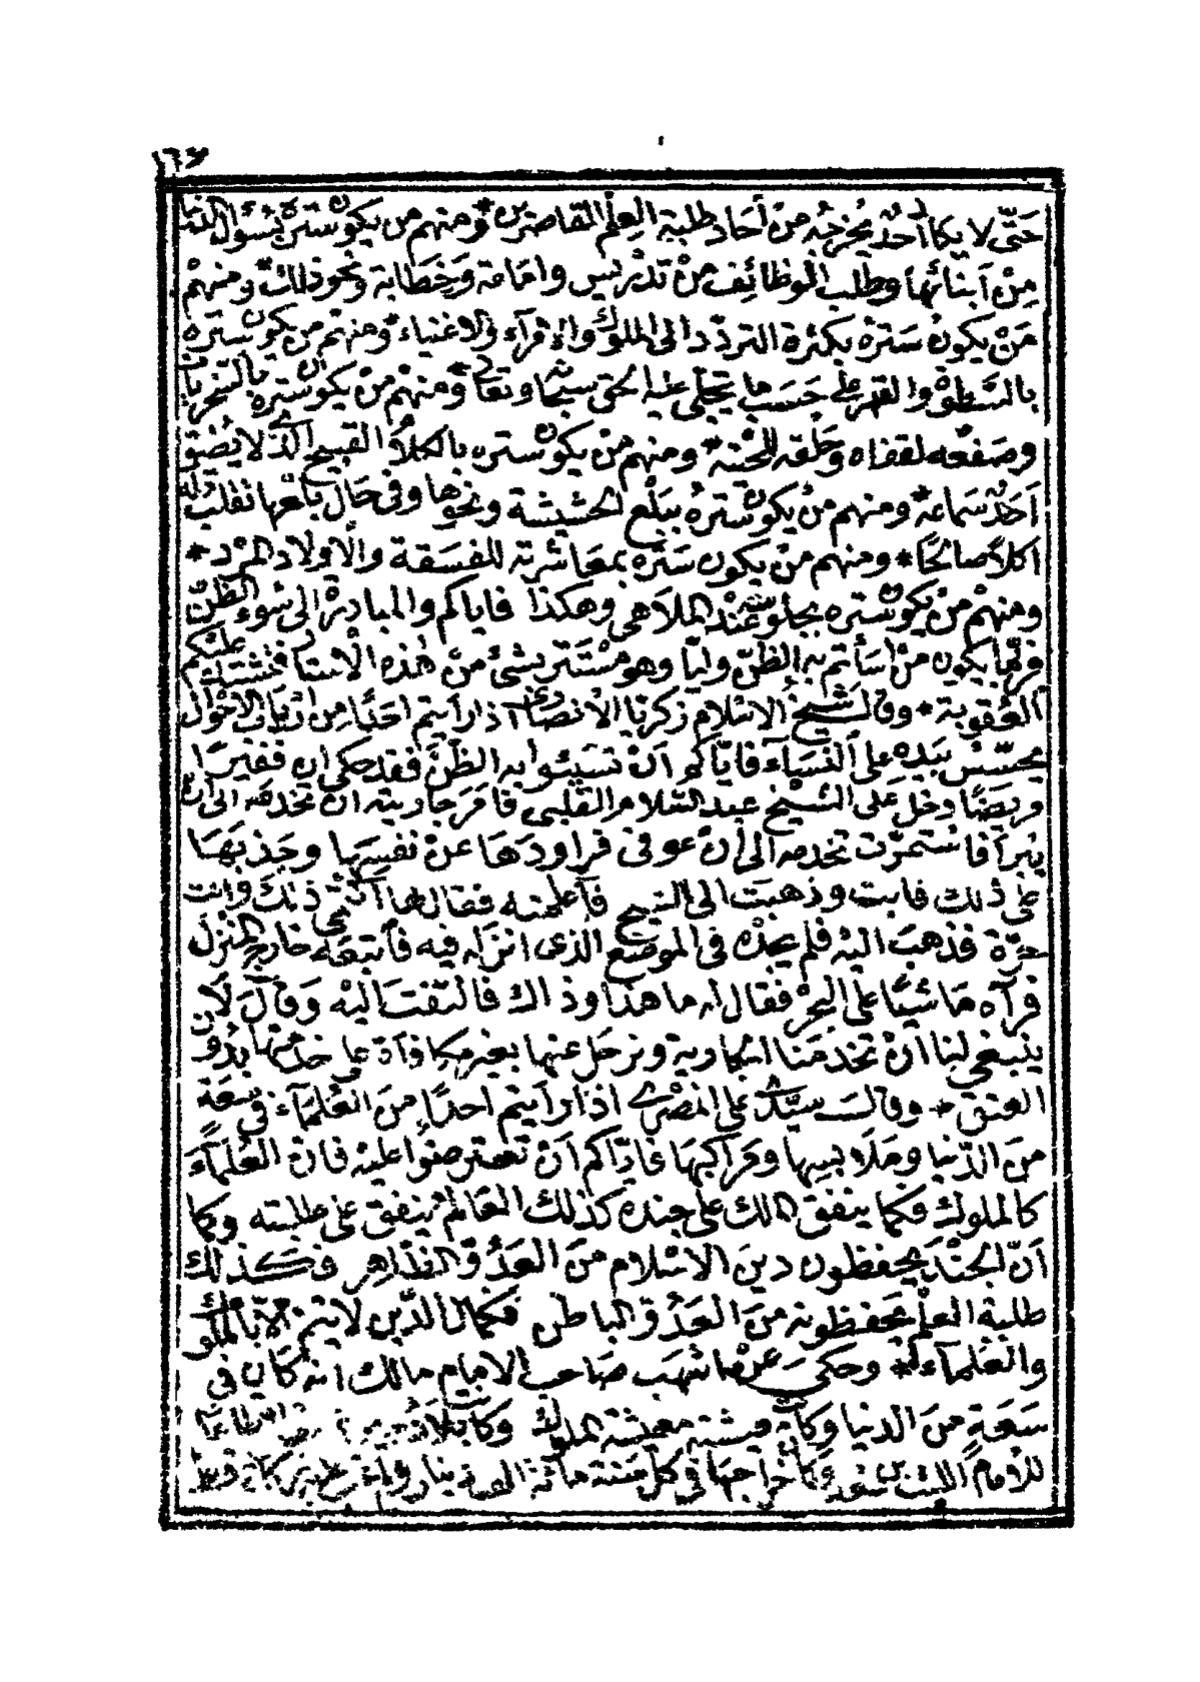 ١٦٤
حَتّى لا يكاد أحدٌ يُخرجُه مِنْ آحَاد طلبة العِلْم القاصرين * ومنهم من يكون سترهُ بسُؤال الدنيا
مِنْ أبنائها وطلب الوظائِف منْ تدْريس وامَامة وَخَطابة ونحو ذلك * ومنهمْ
مَنْ يكونُ سَترُه بكثرة التردّد الى الملوك والامرآء والاغنياء * ومنهم من يكون ستره
بالسَّطوْ والقهر على حَسَب ما يتجلى عليه الحق سبحانه وتعالى * ومنهمْ منْ يكون ستره بالتخريب
وصَفعه لقفاه وحَلقه للحْيته * ومنهم منْ يكون ستره بالكلام القبيح الذى لا يُطيق
أحَدٌ سَماعه * ومنهم منْ يكون سَترهُ ببَلْع الحَشيشة ونحوها وفى حَال بلعها تقلب له
اكلاً صَالحًا * ومنهم منْ يكون سَترُه بمعَاشرته للفسَقة والاولاد المرْد *
ومنهمْ منْ يكون ستره بجلوسه عنْد الملاهى وهكذا فاياكم والمبادرْة الى سُوء الظنّ
فربّما يكون منْ أسأتم به الظنّ وليّا وهو مسْتَتر بشئ منْ هٰذه الاسْتار فتشتد عليكم
العُقوبة * وقال شيخ الاسْلام زكريّا الأنصارى اذا رأيتم احَدًا من ارْباب الاحْوال
يحسّسُ بيَده على النسَاء فايّاكم أنْ تسيئوا به الظنَّ فقد حكى ان فقيرًا
مريضًا دخل على الشيْخ عبد السّلام القليبى فامَر جاريته ان تخدمَه الى أن
يبرأ فاسْتمرّت تخدمه الى أن عوفى فراودَهَا عنْ نفسِهَا وجَذبَهَا
على ذلك فابت وذهبت الى الشيخ فأعلمته فقال لها ذلك وانت
حرّة فذهبَت اليْه فلم يجدْه فى الموضع الذى انزله فيه فأتبعَه خارج المنزل
فرآه مَاشيًا على البحْر فقال له ما هذا وذاك فالتفت اليْه وَقالَ لا
ينبغى لنا انْ تخدمَنا الجارية ونرحَل عنها بغير مكافأة على خدمتها بدون
العتق * وقال سيّدى على المَصْرى اذا رأيتم احدًا منَ العُلمآء فى سَعَةٍ
منَ الدّنيا ومَلابسِها ومَراكبهَا فايّاكم أنْ تعترضوا عليْه فان العُلمآءَ
كالملوك فكما ينفق الملك على جنده كذلك العَالم ينفق على طلبته وكما
أنّ الجنْد يحفظون دينَ الاسْلام منَ العَدُوّ الظاهر فكذلك
طلبة العلْم يحفظونه منَ العَدُوّ الباطن فكمال الدّين لا يتم الاّ بالملوك
والعُلمآء * وحكى عنْ اشهَب صَاحب الامام مالك انه كان فى
سَعَة منَ الدنيا وكانَت معيشته معيشة الملوك
للامام الليث وكان خراجها فى كل سَنة مائة الف دينار